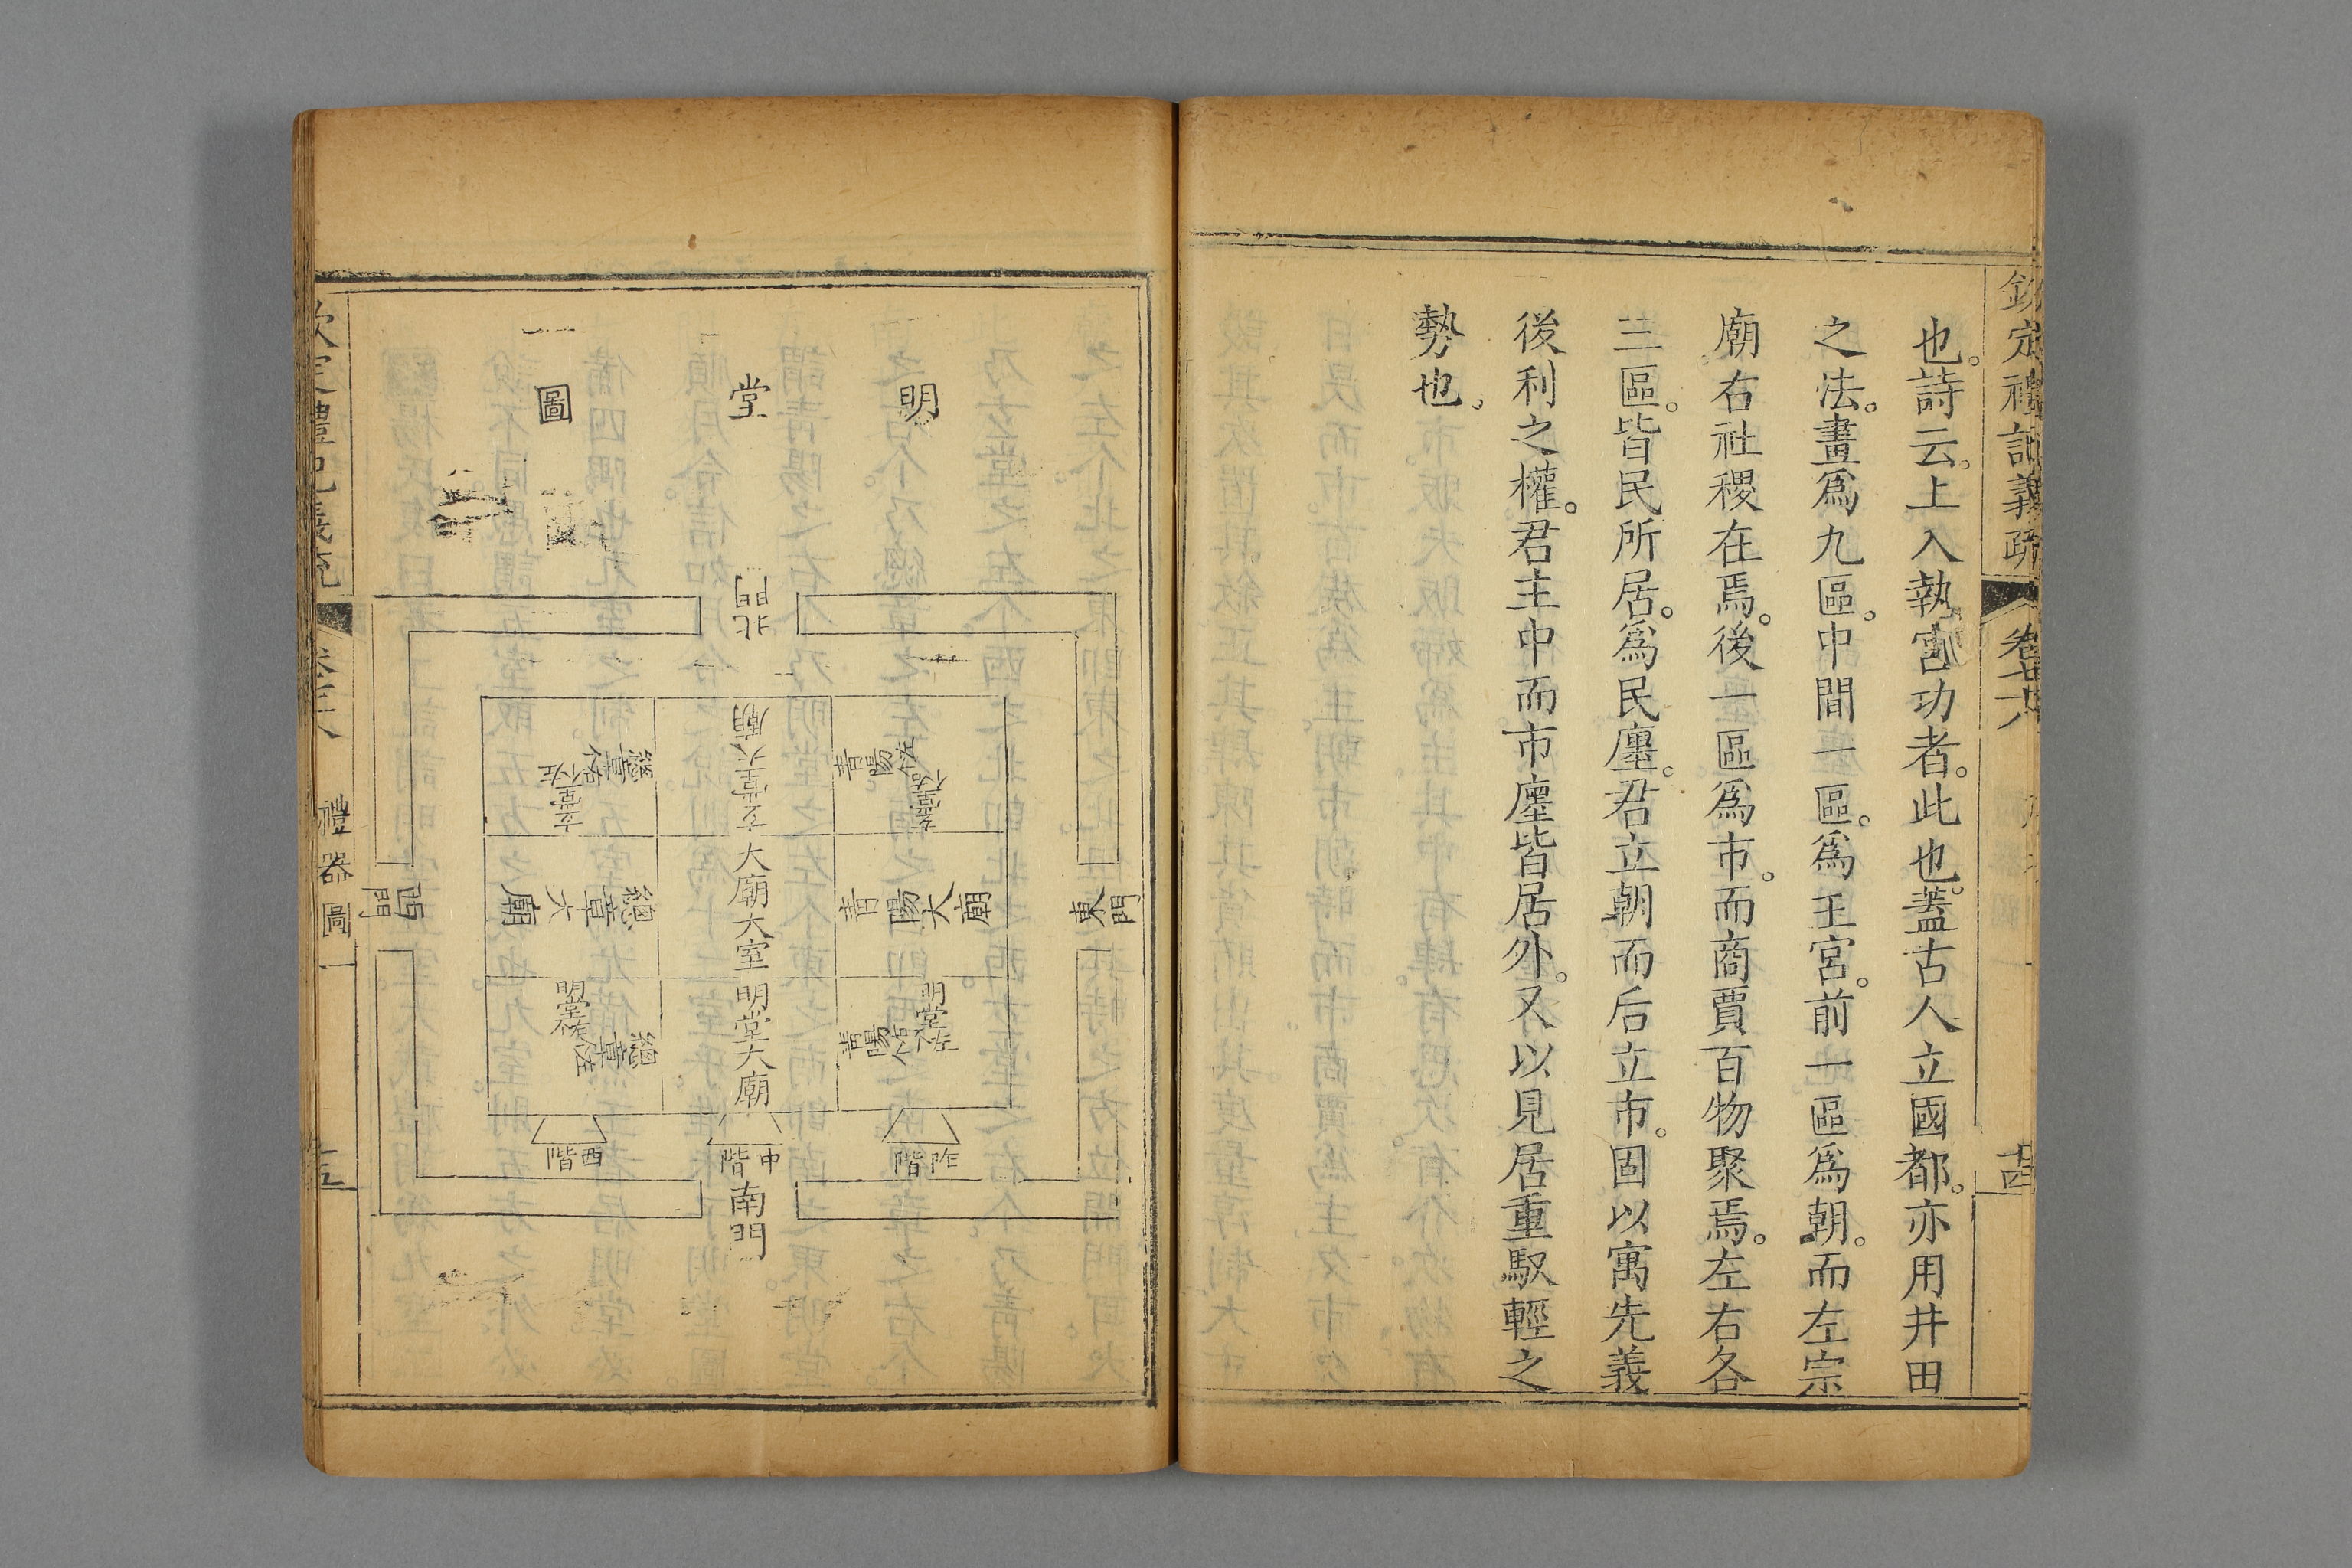 欽定禮記義疏
也。詩云。上入執宮功者。此也。蓋古人立國都。亦用井田
之法。畫爲九區。中間一區。爲王宮。前一區爲朝。而左宗
廟右社稷在焉。後一區爲市。而商賈百物聚焉。左右各
三區。皆民所居。爲民廛。君立朝而后立市。固以寓先義
後利之權。君主中而市廛皆居外。又以見居重馭輕之
勢也。
明堂圖
北門
東門
西門
南門
玄堂大廟
玄堂右个
青陽左个
玄堂左个
總章右个
青陽大廟
大廟大室
總章大廟
明堂左个
青陽右个
明堂大廟
明堂右个
總章左个
阼階
中階
西階
禮器圖